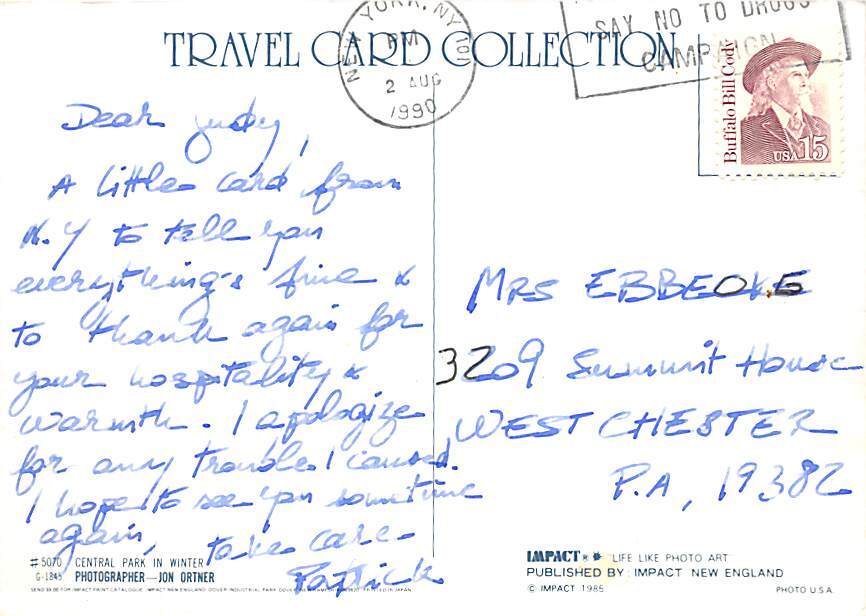 TRAVEL CARD COLLECTION
NEW YORK, NY 101
PM
2 AUG
1990
SAY NO TO DRUGS
CAMPAIGN
Buffalo Bill Cody
USA 15
Dear Judy,
A little card from
N.Y to tell you
everything's fine &
to thank again for
your hospitality &
warmth. I apologize
for any trouble I caused.
I hope to see you sometime
again,
take care
Patrick
MRS EBBECKE
3209 Summit House
WEST CHESTER
P.A, 19382
#5070 CENTRAL PARK IN WINTER
G-1845 PHOTOGRAPHER—JON ORTNER
IMPACT "LIFE LIKE PHOTO ART"
PUBLISHED BY: IMPACT NEW ENGLAND
© IMPACT 1985
PHOTO U.S.A.